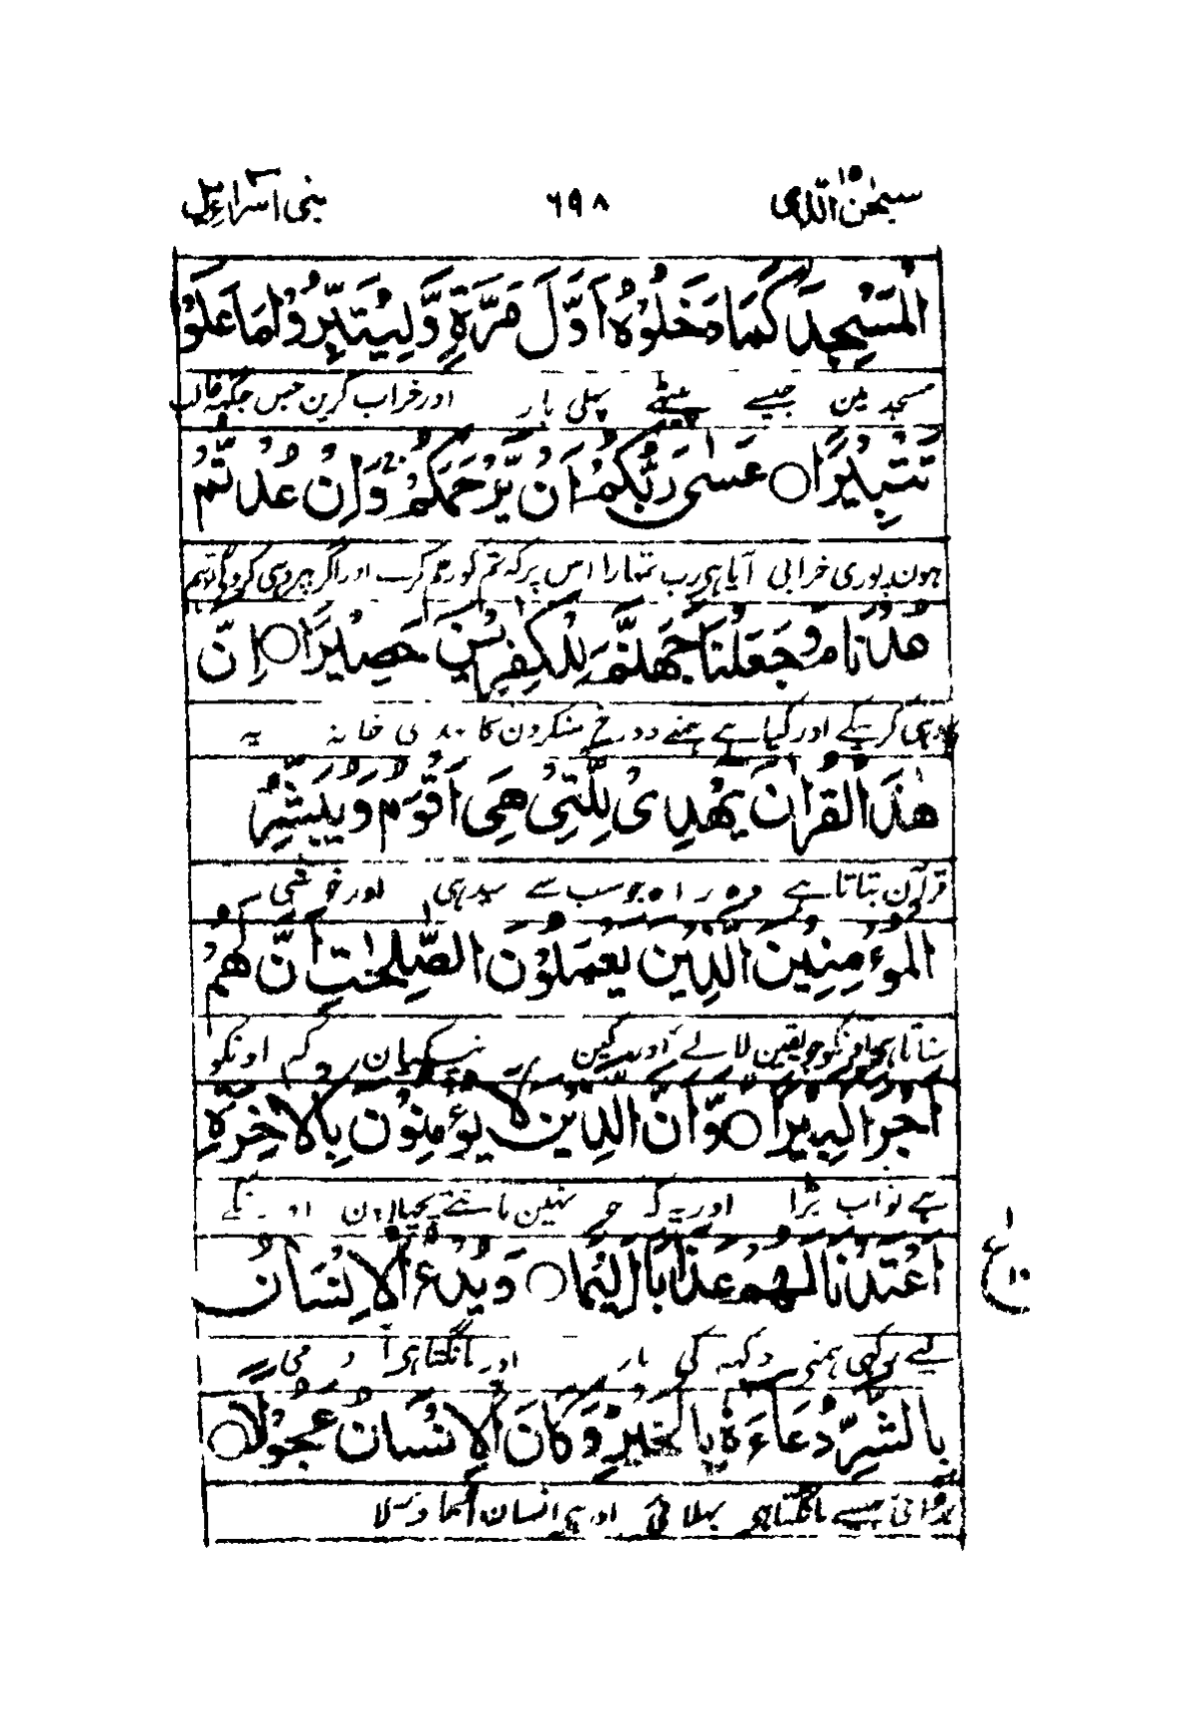 سبحٰن الذی ۱۵ ۶۹۸ بنی اسراءیل ۱۷
الْمَسْجِدَ كَمَا دَخَلُوْهُ اَوَّلَ مَرَّةٍ وَّلِيُتَبِّرُوْا مَا عَلَوْا
مسجد مین جیسے پیٹھے پہلی بار اور خراب کرین جس جگہہ غالب
تَتْبِيْرًا ○ عَسٰى رَبُّكُمْ اَنْ يَّرْحَمَكُمْ وَاِنْ عُدْتُّمْ
ہون پوری خرابی آیا ہی رب تمہارا اس پر کہ تم کو رحم کرے اور اگر پھر وہی کروگے تو ہم
عُدْنَا وَجَعَلْنَا جَهَنَّمَ لِلْكٰفِرِيْنَ حَصِيْرًا ○ اِنَّ
وہی کرینگے اور کیا ہے ہمنے دوزخ منکرون کا بندی خانہ یہ
هٰذَا الْقُرْاٰنَ يَهْدِىْ لِلَّتِىْ هِىَ اَقْوَمُ وَيُبَشِّرُ
قرآن بتاتا ہے وہ راہ جو سب سے سیدہی اور خوشی
الْمُؤْمِنِيْنَ الَّذِيْنَ يَعْمَلُوْنَ الصّٰلِحٰتِ اَنَّ لَهُمْ
سناتا ہے اونکو جو یقین لائے اور کین نیکیان کہ اونکو
اَجْرًا كَبِيْرًا ○ وَّاَنَّ الَّذِيْنَ لَا يُؤْمِنُوْنَ بِالْاٰخِرَةِ
ہے ثواب بڑا اور یہ کہ جو نہین مانتے پچھلا دن اونکے
اَعْتَدْنَا لَهُمْ عَذَابًا اَلِيْمًا ○ وَيَدْعُ الْاِنْسَانُ
لیے رکھی ہمنے دکھہ کی مار اور مانگتا ہی آدمی
بِالشَّرِّ دُعَاءَهٗ بِالْخَيْرِ وَكَانَ الْاِنْسَانُ عَجُوْلًا ○
برائی جیسے مانگتا ہے بھلائی اور ہے انسان اوتاولا
ع ۱۰